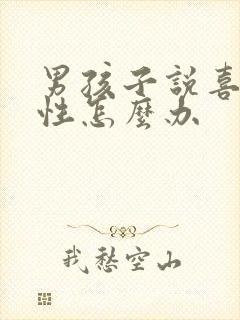 男孩子說喜
性怎麼办
我愁空山